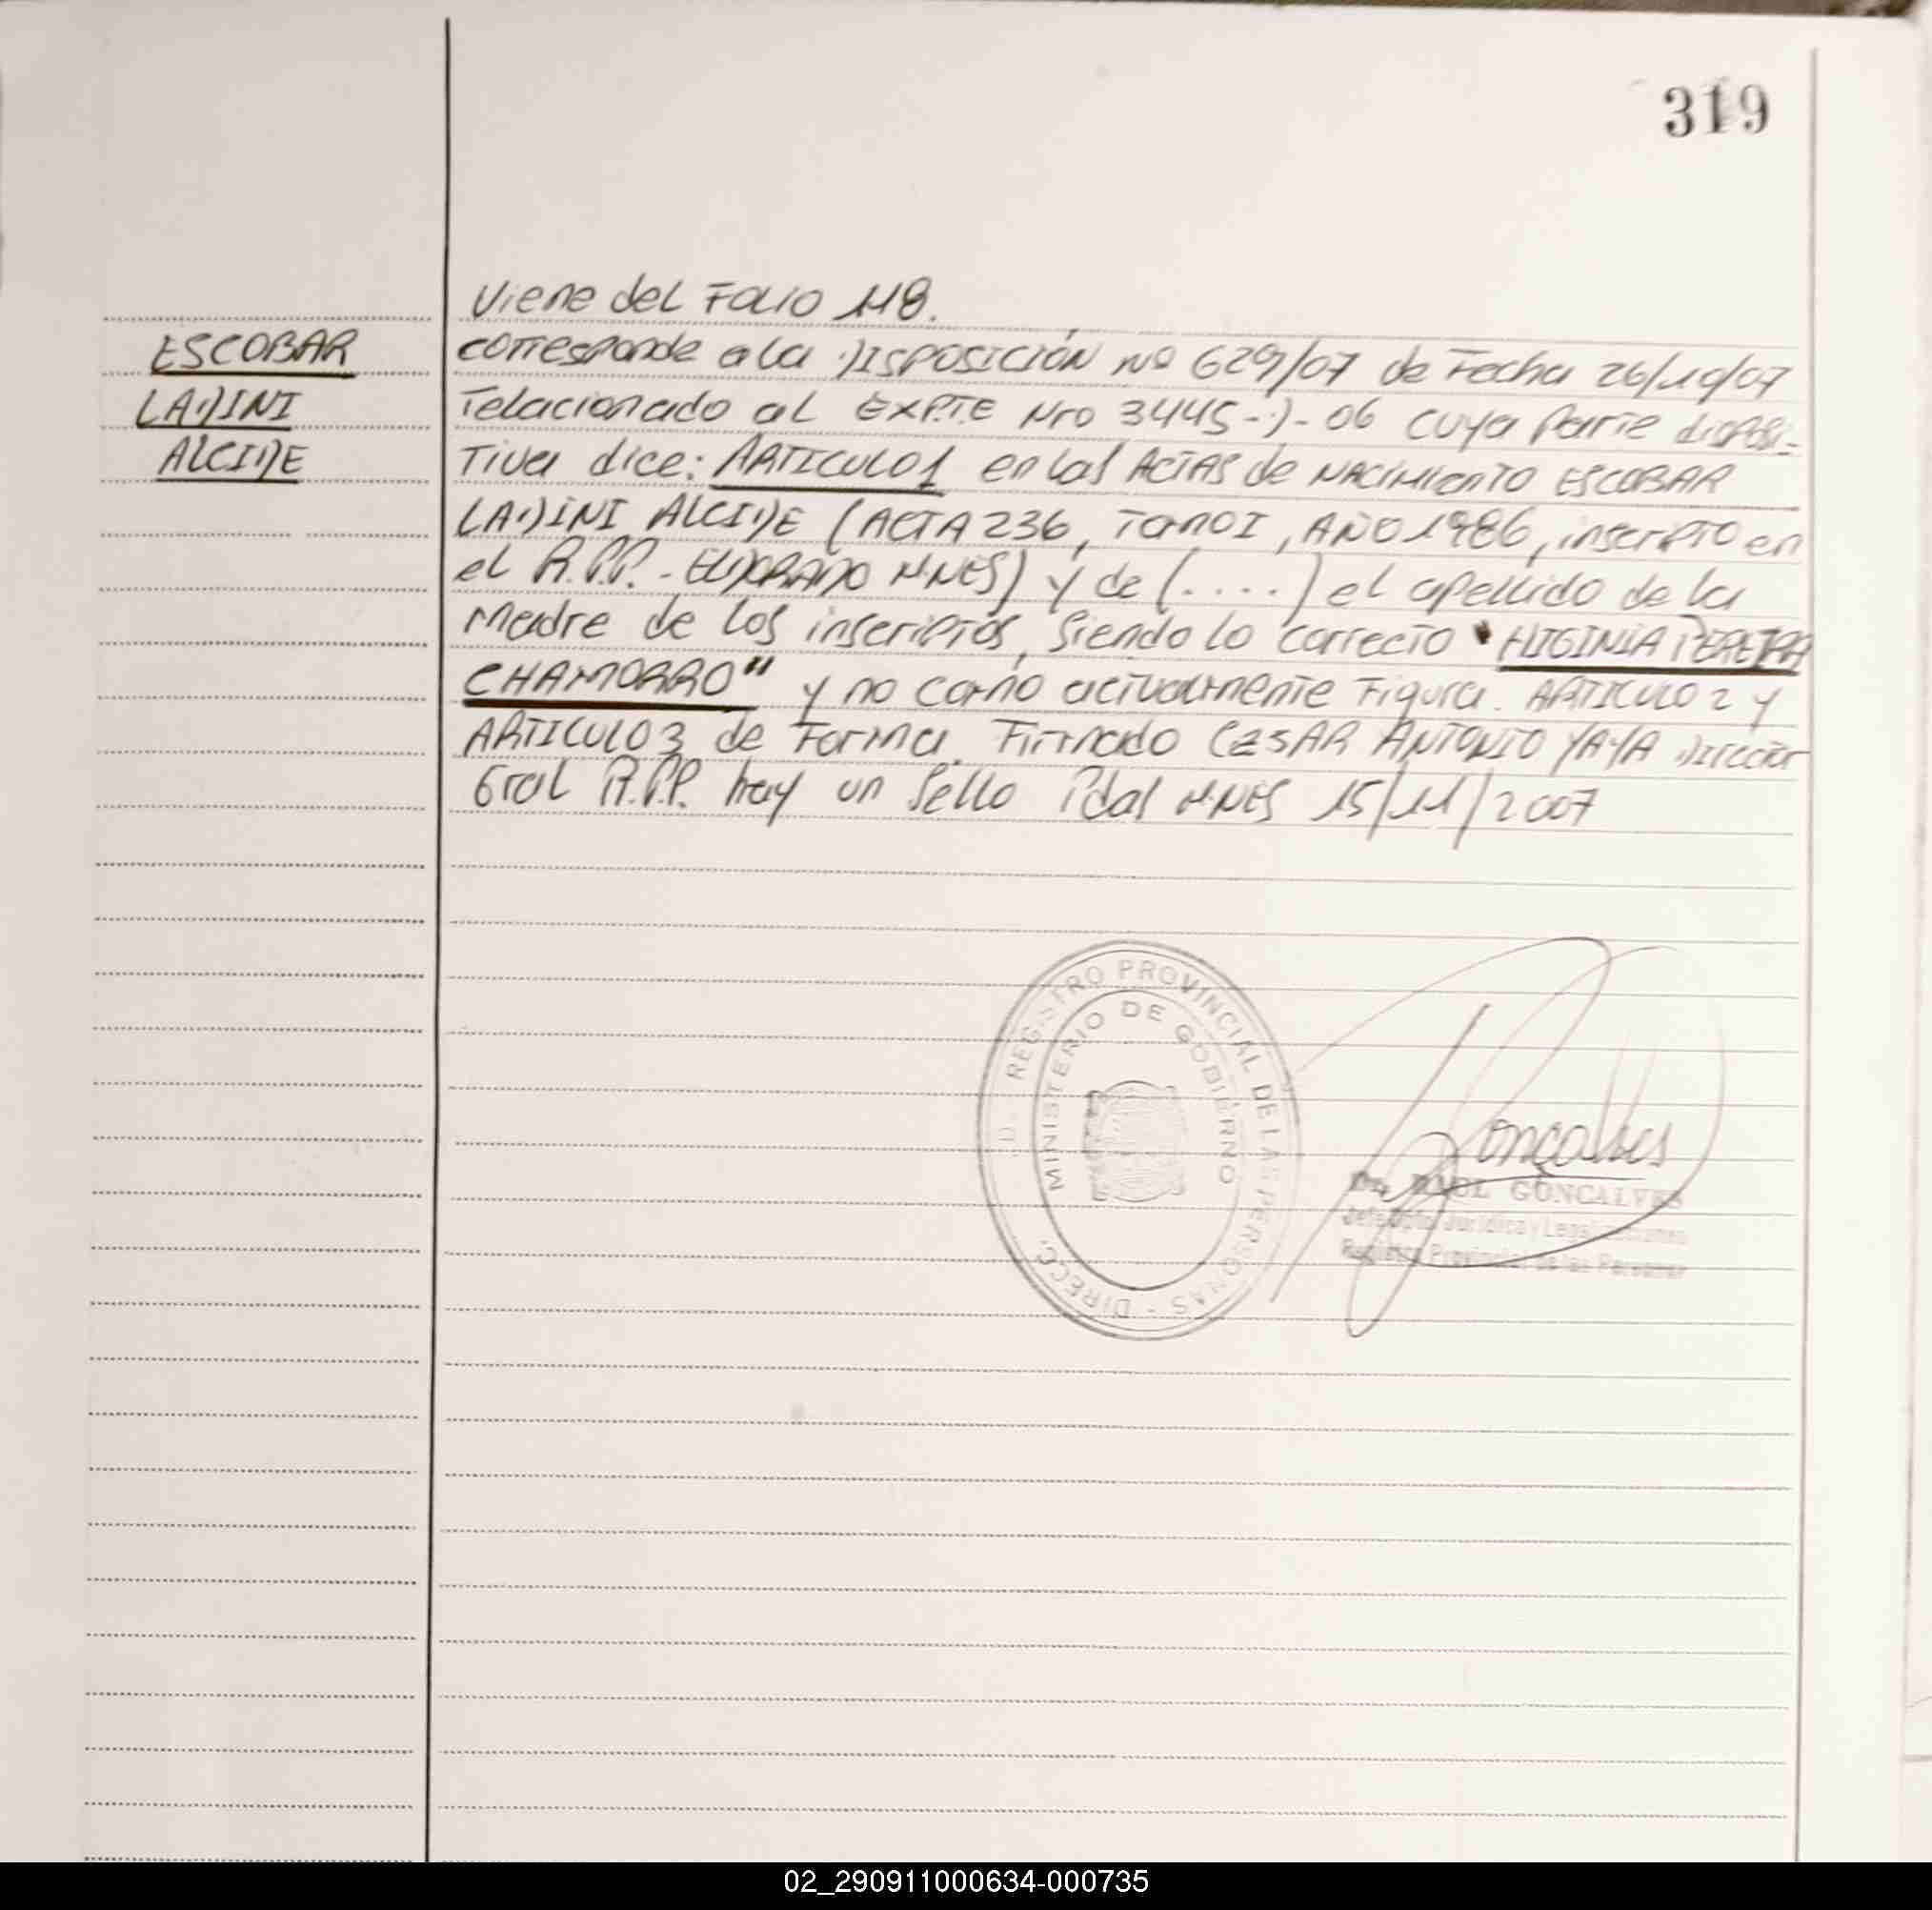 319
Viene del Folio 118.
ESCOBAR
LADINI
ALCIDE
corresponde a la DISPOSICIÓN Nº 629/07 de Fecha 26/10/07
relacionado al EXPTE Nro 3445-D-06 cuya parte disposi-
tiva dice: ARTICULO 1 en las ACTAS de NACIMIENTO ESCOBAR
LADINI ALCIDE (ACTA 236, TOMO I, AÑO 1986, inscripto en
el R.P.P. - ELDORADO MNES) y de (....) el apellido de la
Madre de los inscriptos, siendo lo correcto "HIGINIA PEREIRA
CHAMORRO" y no como actualmente Figura. ARTICULO 2 y
ARTICULO 3 de Forma. Firmado CESAR ANTONIO YAYA Director
Gral R.P.P. hay un Sello Pdas MNES 15/11/2007
DIRECC. REGISTRO PROVINCIAL DE LAS PERSONAS -
MINISTERIO DE GOBIERNO
Goncalves
Dr. RAUL GONCALVES
Jefe Dpto. Jurídica y Legalizaciones
Registro Provincial de las Personas
02_290911000634-000735